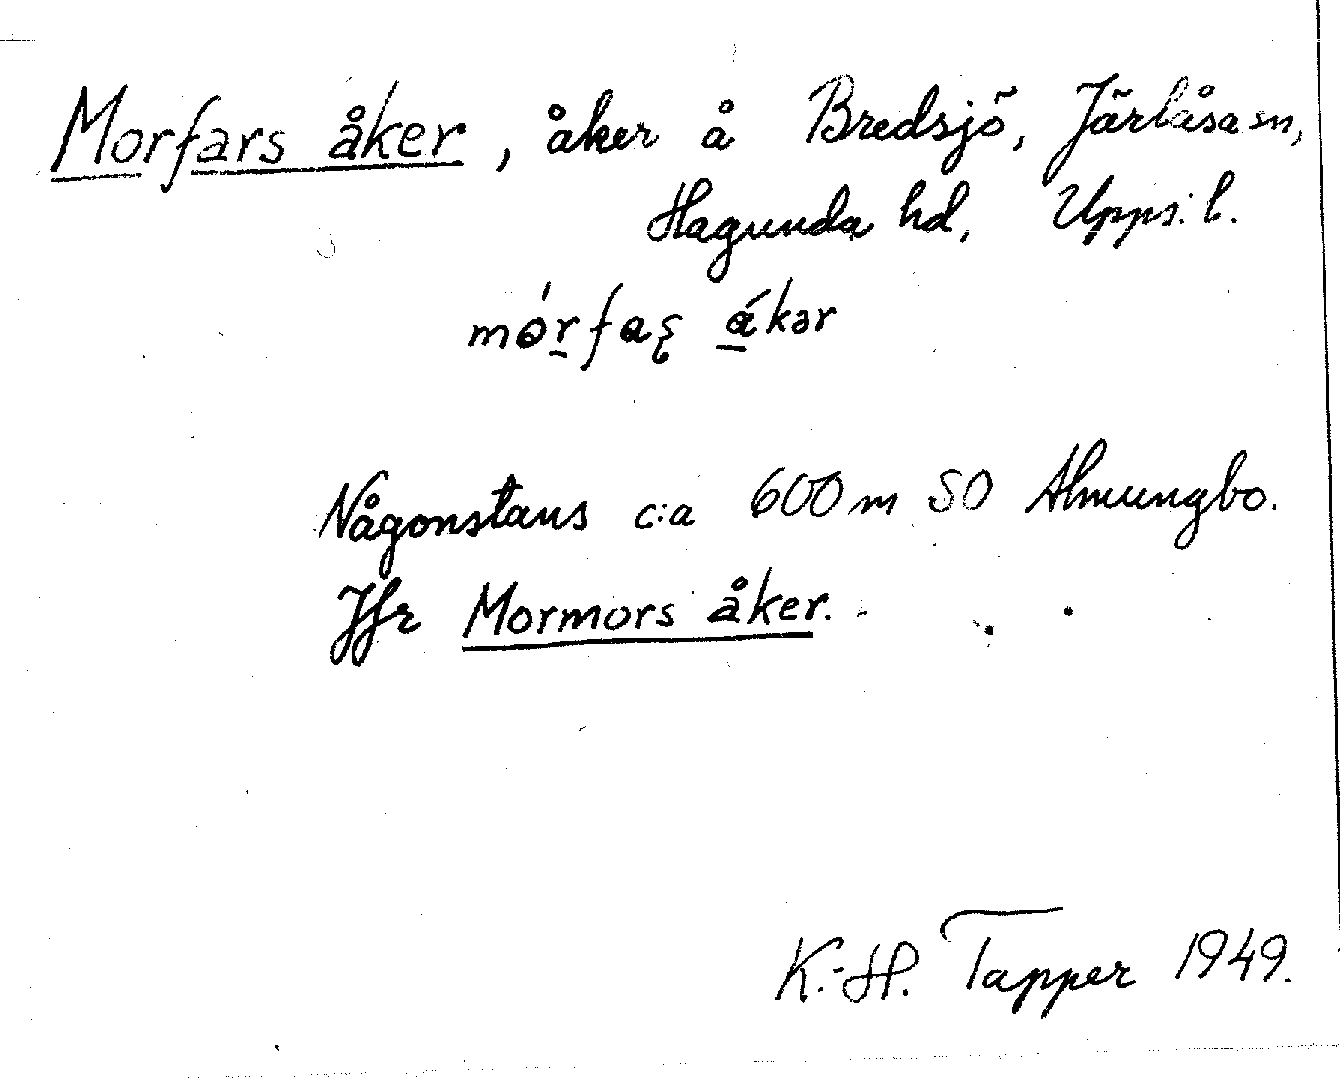 Morfars åker, åker å Bredsjö, Järlåsa sn,
Hagunda hd, Upps. l.
mórfaʂ ákər
Någonstans c:a 600 m SO Almungbo.
Jfr Mormors åker.
K.-H. Tapper 1949.